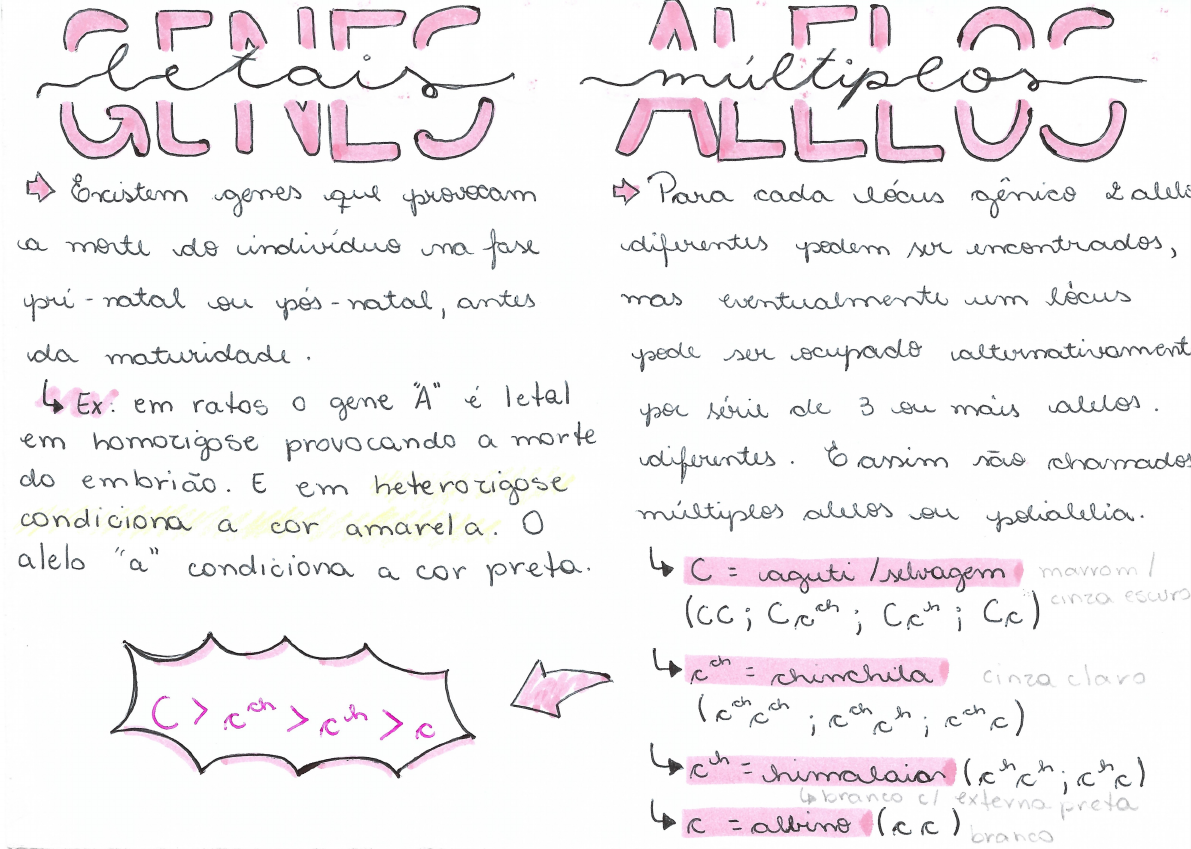 GENES
letais
➩ Existem genes que provocam
a morte do indivíduo na fase
pré-natal ou pós-natal, antes
da maturidade.
↳ Ex: em ratos o gene "A" é letal
em homozigose provocando a morte
do embrião. E em heterozigose
condiciona a cor amarela. O
alelo "a" condiciona a cor preta.
C > cᶜʰ > cʰ > c
ALELOS
múltiplos
➩ Para cada lócus gênico 2 alelo
diferentes podem ser encontrados,
mas eventualmente um lócus
pode ser ocupado alternativament
por série de 3 ou mais alelos.
diferentes. E assim são chamados
múltiplos alelos ou polialelia.
↳ C = aguti / selvagem marrom /
cinza escuro
(CC; Ccᶜʰ; Ccʰ; Cc)
↳ cᶜʰ = chinchila cinza claro
(cᶜʰcᶜʰ; cᶜʰcʰ; cᶜʰc)
↳ cʰ = himalaia (cʰcʰ; cʰc)
↳ branco c/ externa preta
↳ c = albino (cc) branco